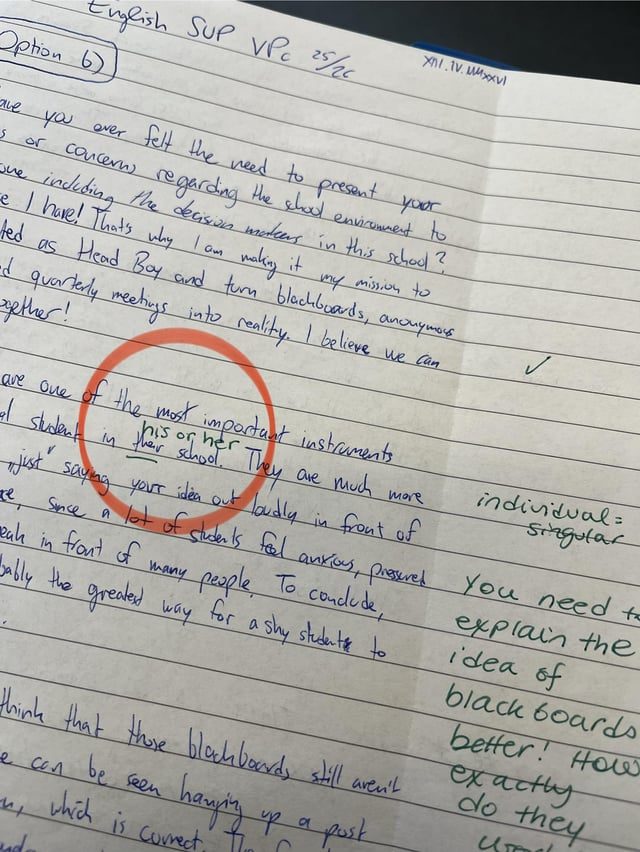 English SUP VPc 25/26
XIII.IV.MMXXVI
Option 6)
ave you ever felt the need to present your
s or concerns regarding the school environment to
one including the decision makers in this school?
e I have! That's why I am making it my mission to
ted as Head Boy and turn blackboards, anonymous
d quarterly meetings into reality. I believe we can
ogether!
✓
are one of the most important instruments
his or her
al student in their school. They are much more
„just" saying your idea out loudly in front of
re, since a lot of students feel anxious, pressured
eak in front of many people. To conclude,
bably the greatest way for a shy student to
individual =
singular
You need to
explain the
idea of
blackboards
better! How
exactly
do they
think that those blackboards still aren't
e can be seen hanging up a post
, which is correct.